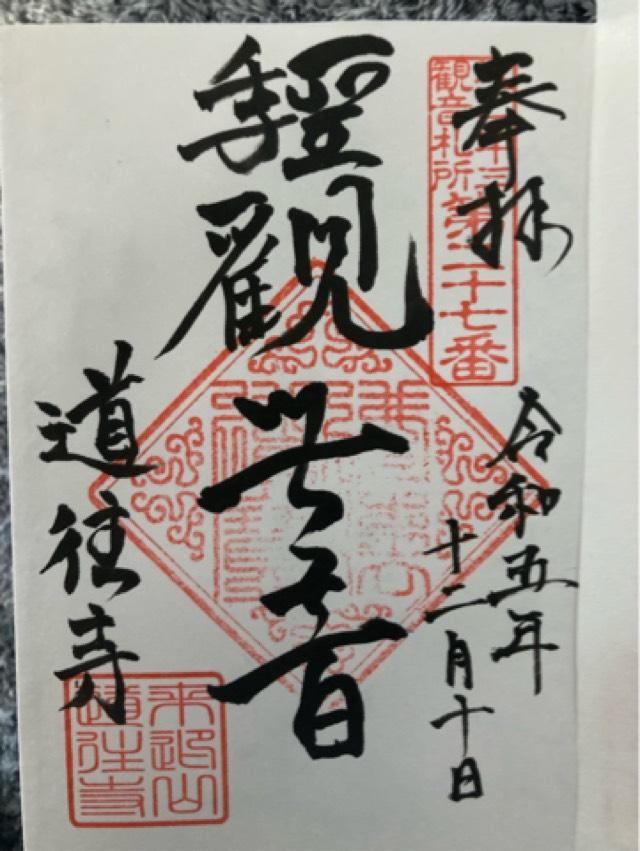 奉拝
観音札所
第二十七番
令和五年
十二月十日
聖
千手
觀世音
道往寺
来迎山
道往寺